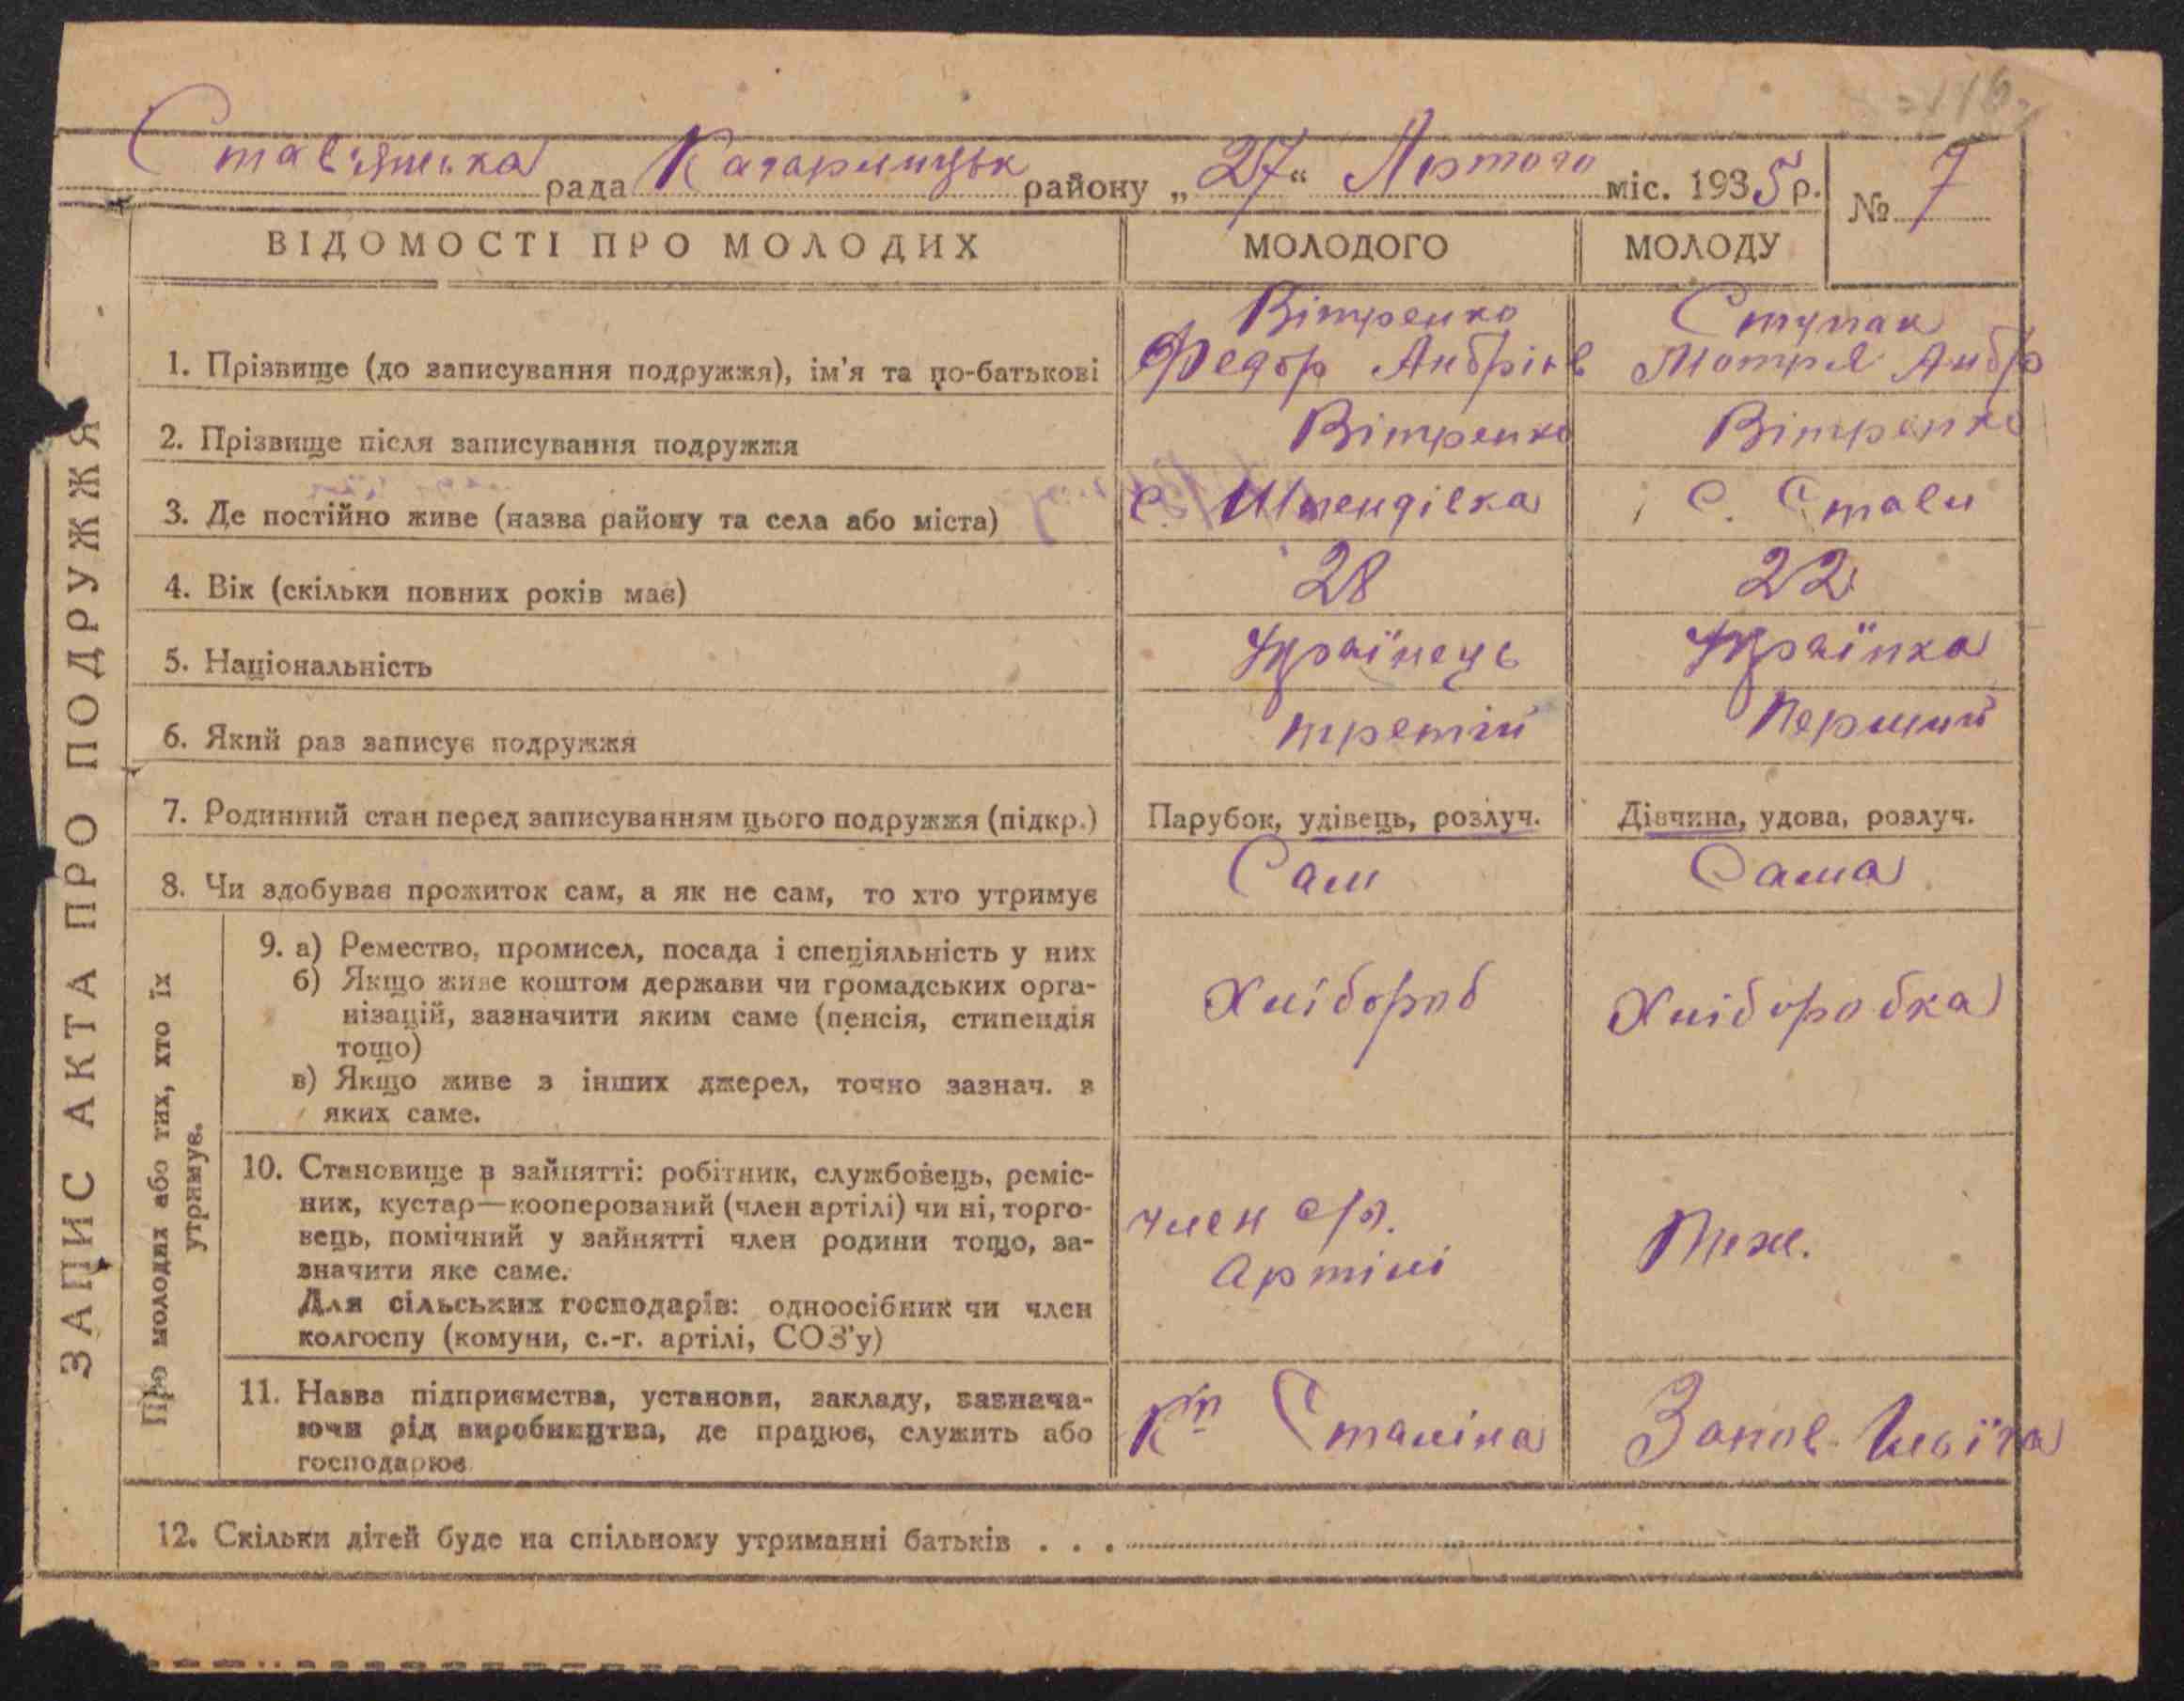 Став'янська рада Кагарлицьк району „27“ Лютого міс. 1935 р.
№ 7
ВІДОМОСТІ ПРО МОЛОДИХ МОЛОДОГО МОЛОДУ
Вітренко Ступак
1. Прізвище (до записування подружжя), ім'я та по-батькові Федор Андріїв Мотря Андр
2. Прізвище після записування подружжя Вітренко Вітренко
3. Де постійно живе (назва району та села або міста) с. Шпендівка С. Стави
4. Вік (скільки повних років має) 28 22
5. Національність Українець Українка
6. Який раз записує подружжя третій Перший
7. Родинний стан перед записуванням цього подружжя (підкр.) Парубок, удівець, розлуч. Дівчина, удова, розлуч.
8. Чи здобуває прожиток сам, а як не сам, то хто утримує Сам Сама
ЗАПИС АКТА ПРО ПОДРУЖЖЯ
Про молодих або тих, хто їх
утримує.
9. а) Ремество, промисел, посада і спеціяльність у них
б) Якщо живе коштом держави чи громадських орга-
нізацій, зазначити яким саме (пенсія, стипендія
тощо)
в) Якщо живе з інших джерел, точно зазнач. з
яких саме.
Хлібороб Хліборобка
10. Становище в зайнятті: робітник, службовець, реміс-
ник, кустар—кооперований (член артілі) чи ні, торго-
вець, помічний у зайнятті член родини тощо, за-
значити яке саме.
Для сільських господарів: одноосібник чи член
колгоспу (комуни, с.-г. артілі, СОЗ'у)
член с/г. Теж.
Артілі
11. Назва підприємства, установи, закладу, зазнача-
ючи рід виробництва, де працює, служить або
господарює
Сталіна Запов. Ілліча
12. Скільки дітей буде на спільному утриманні батьків . . .